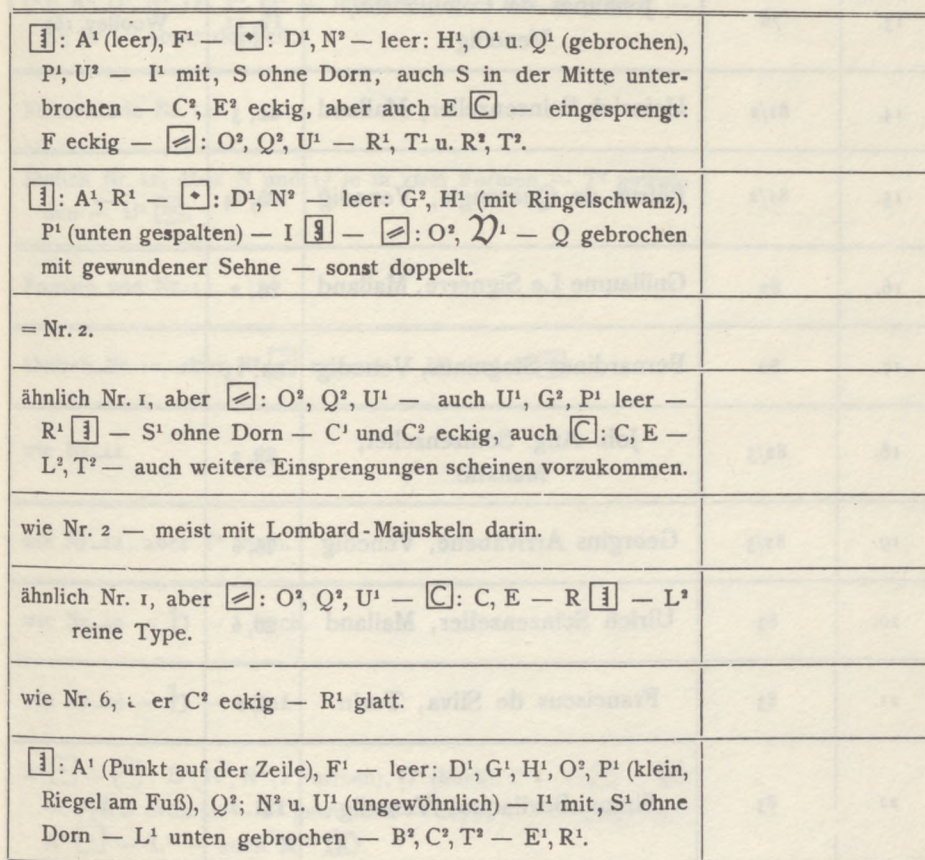 : A¹ (leer), F¹ — : D¹, N² — leer: H¹, O¹ u. Q¹ (gebrochen),
P¹, U² — I¹ mit, S ohne Dorn, auch S in der Mitte unter-
brochen — C², E² eckig, aber auch rund C eingesprengt:
F eckig — : O², Q², U¹ — R¹, T¹ u. R², T².
: A¹, R¹ — : D¹, N² — leer: G², H¹ (mit Ringelschwanz),
P¹ (unten gespalten) — I — : O², D¹ — Q gebrochen
mit gewundener Sehne — sonst doppelt.
= Nr. 2.
ähnlich Nr. 1, aber : O², Q², U¹ — auch U¹, G², P¹ leer —
R¹ — S¹ ohne Dorn — C¹ und C² eckig, auch C: C, E —
L², T² — auch weitere Einsprengungen scheinen vorzukommen.
wie Nr. 2 — meist mit Lombard-Majuskeln darin.
ähnlich Nr. 1, aber : O², Q², U¹ — C: C, E — R — L²
reine Type.
wie Nr. 6, er C² eckig — R¹ glatt.
: A¹ (Punkt auf der Zeile), F¹ — leer: D¹, G¹, H¹, O², P¹ (klein,
Riegel am Fuß), Q²; N² u. U¹ (ungewöhnlich) — I¹ mit, S¹ ohne
Dorn — L¹ unten gebrochen — B², C², T² — E¹, R¹.